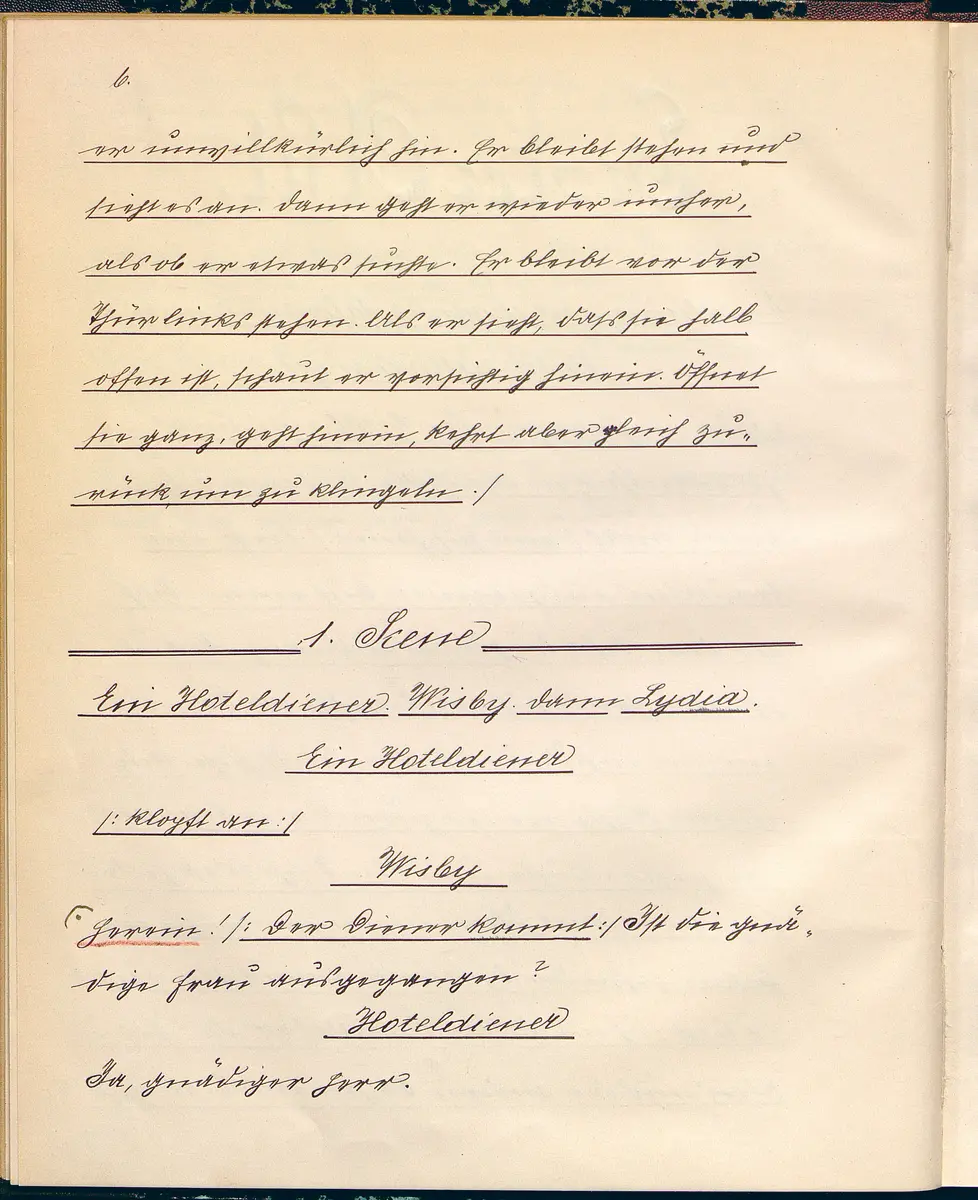 6.
er unwillkürlich hin. Er bleibt stehen und
sieht es an. Dann geht er wieder umher,
als ob er etwas suchte. Er bleibt vor der
Thür links stehen. Als er sieht, dass sie halb
offen ist, schaut er vorsichtig hinein. Öffnet
sie ganz, geht hinein, kehrt aber gleich zu-
rück, um zu klingeln ./
1. Scene
Ein Hoteldiener. Wisby. dann Lydia.
Ein Hoteldiener
/: klopft an :/
Wisby
Herein! /: Der Diener kommt :/ Ist die gnä-
dige Frau ausgegangen?
Hoteldiener
Ja, gnädiger Herr.